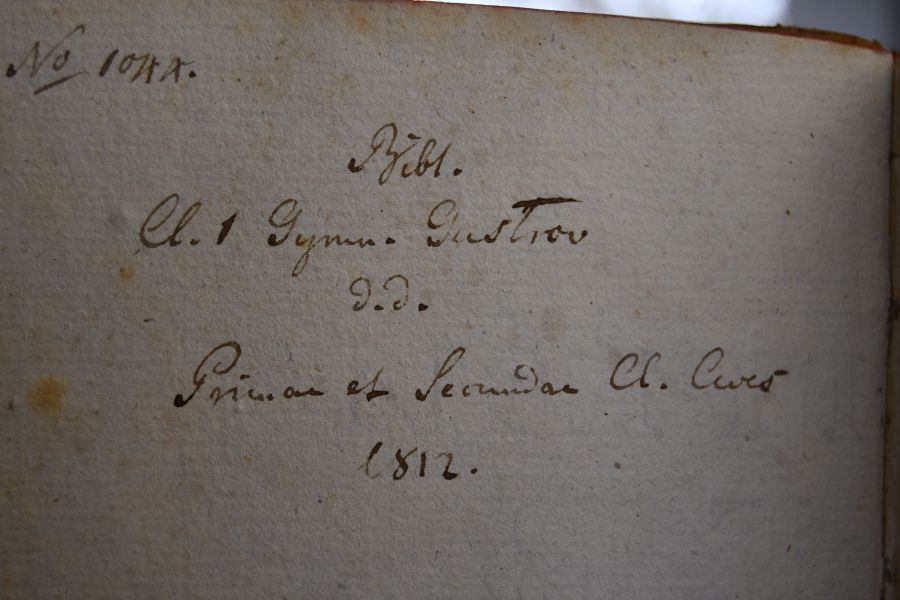 No 1044.
Bibl.
Cl. 1 Gymn. Gustrov
d.d.
Primae et Secundae Cl. Cives
1812.